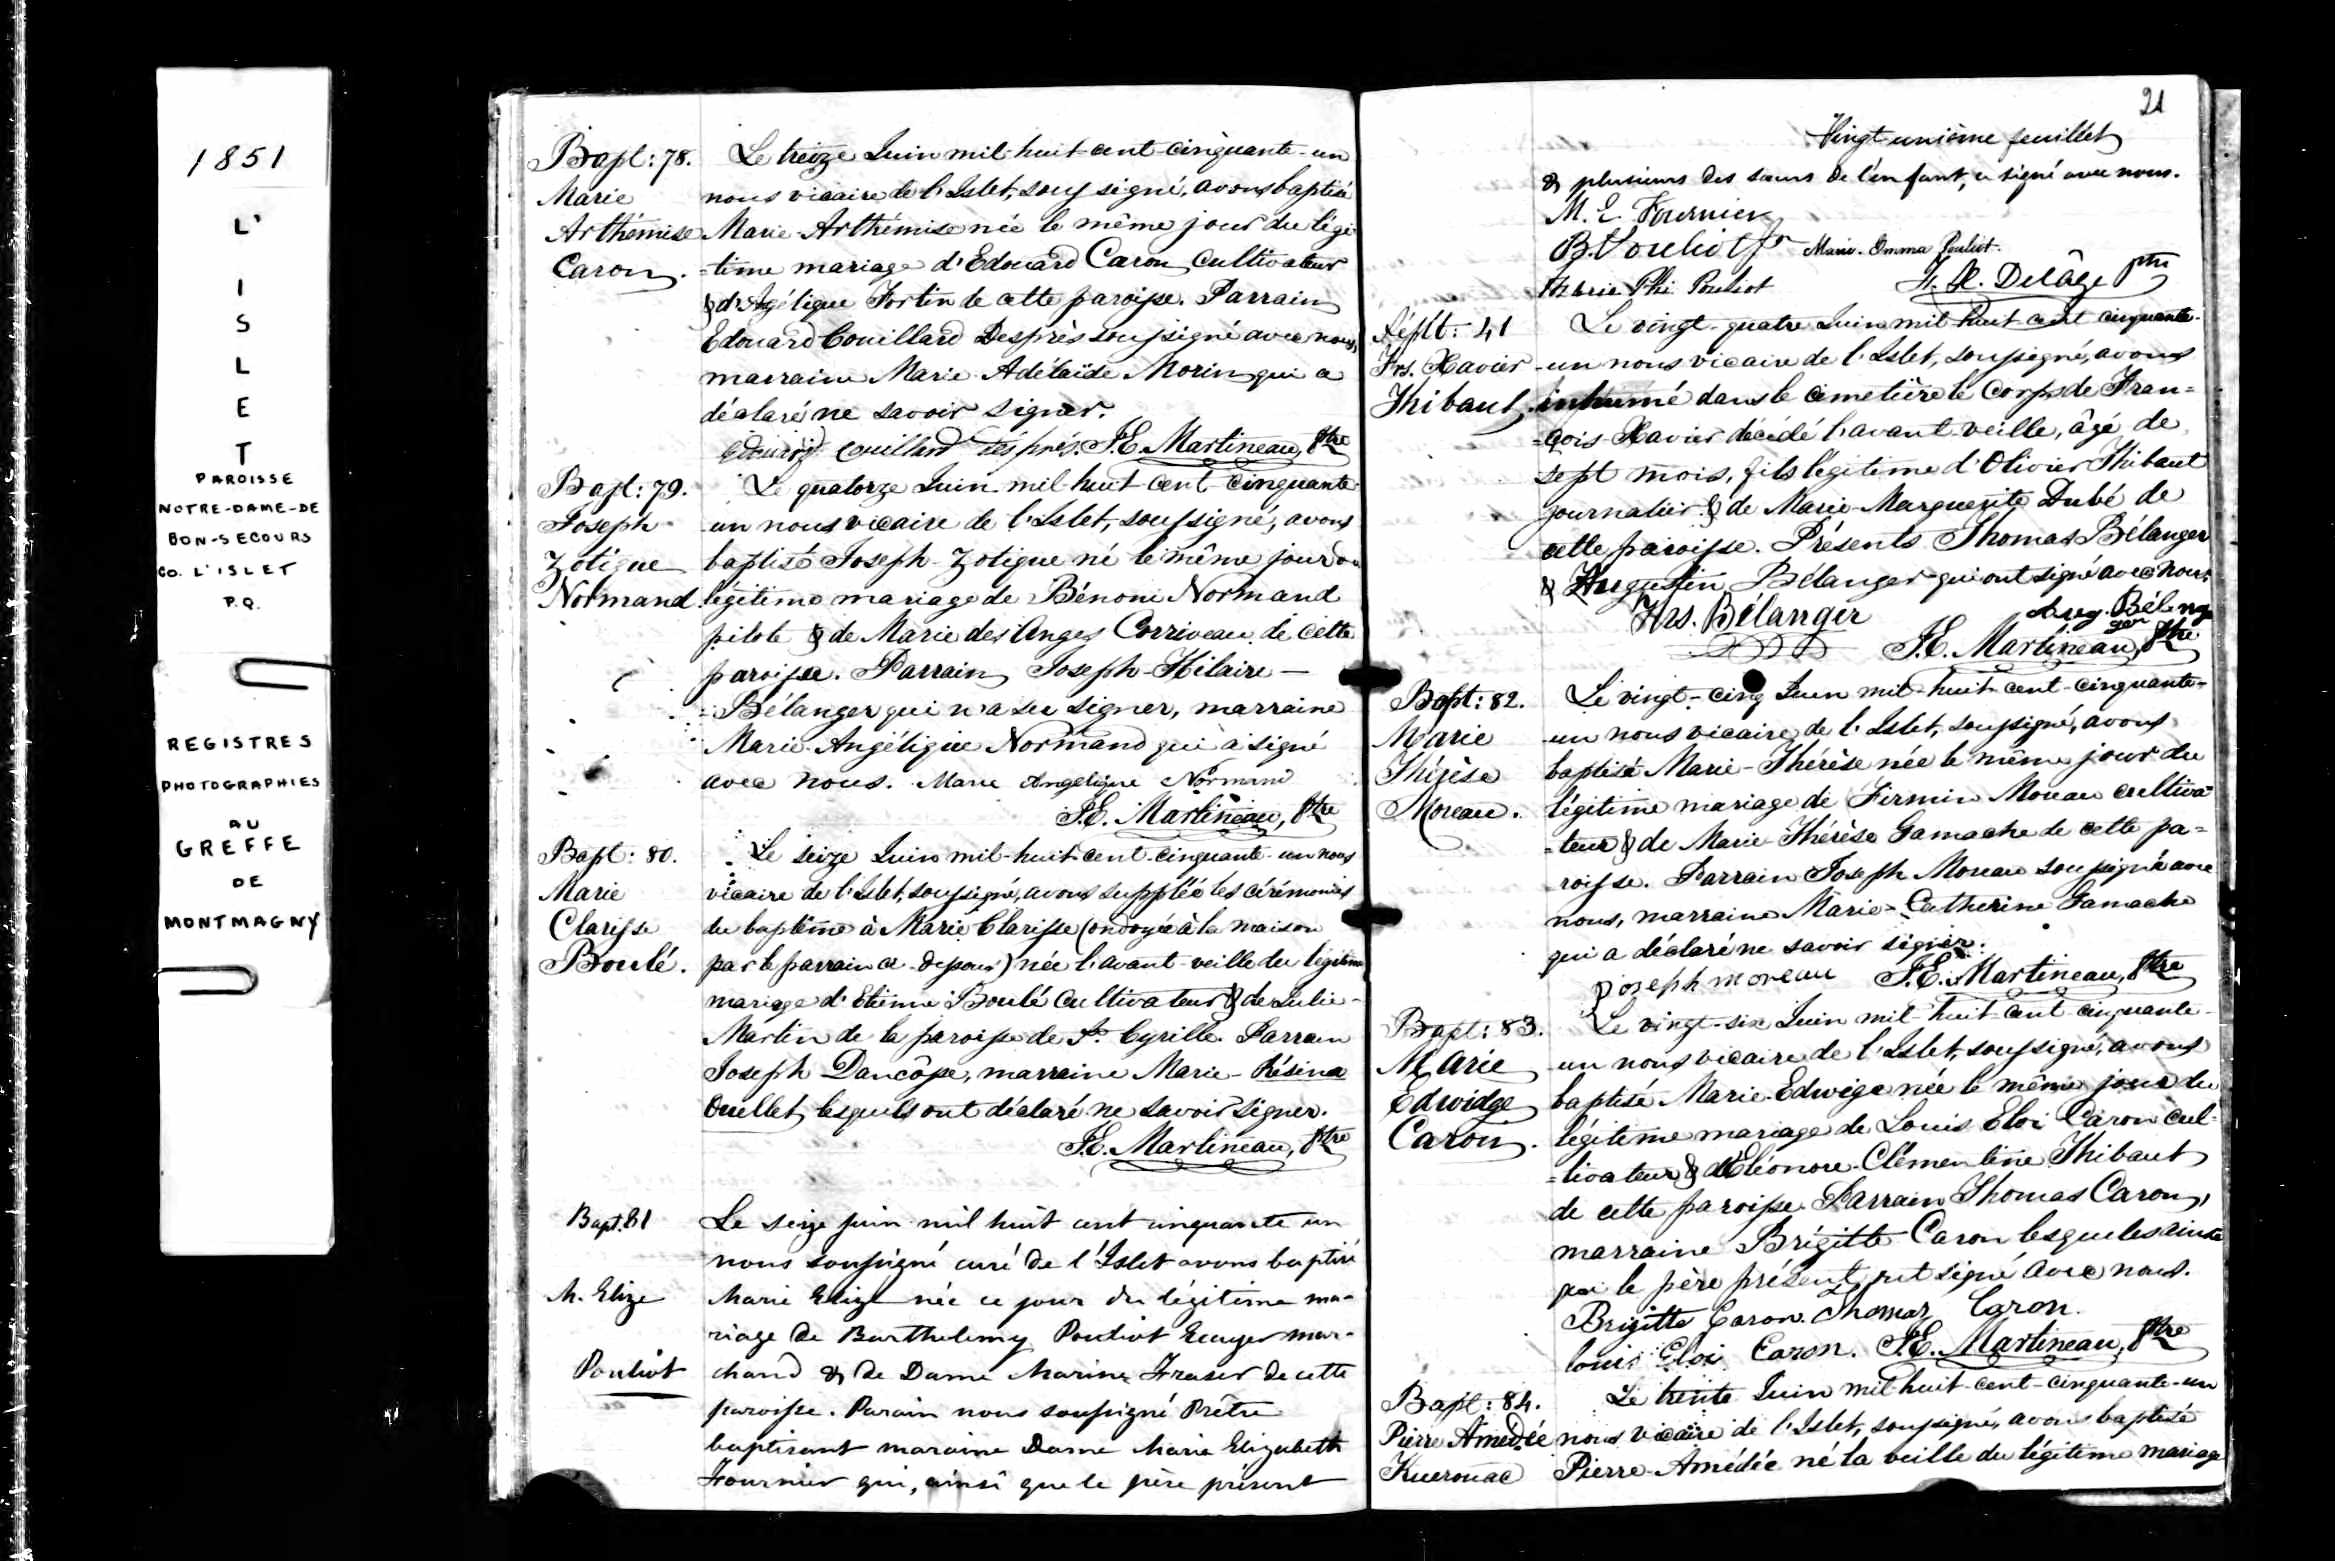 1851
L'
I
S
L
E
T
PAROISSE
NOTRE-DAME-DE
BON-SECOURS
CO. L'ISLET
P.Q.
REGISTRES
PHOTOGRAPHIES
AU
GREFFE
DE
MONTMAGNY
Bapt: 78.
Marie
Arthémise
Caron.
Le treize Juin mil-huit-cent-cinquante-un
nous vicaire de l'Islet, soussigné, avons baptisé
Marie-Arthémise née le même jour du légi-
=time mariage d'Edouard Caron cultivateur
& d'Agélique Fortin de cette paroisse. Parrain
Edouard Couillard Després soussigné avec nous,
marraine Marie-Adélaïde Morin qui a
déclaré ne savoir signer.
Edouard Couillard Després. J.E. Martineau, Ptre
Bapt: 79.
Joseph
Zotique
Normand
Le quatorze Juin mil-huit-cent-cinquante-
un nous vicaire de l'Islet, soussigné, avons
baptisé Joseph-Zotique né le même jour du
légitime mariage de Bénoni Normand
pilote & de Marie des Anges Corriveau de cette
paroisse. Parrain Joseph-Hilaire —
=Bélanger qui n'a su signer, marraine
Marie-Angélique Normand qui a signé
avec nous. Marie Angelique Normand
J.E. Martineau, Ptre
Bapt: 80.
Marie
Clarisse
Boulé.
Le seize Juin mil-huit-cent-cinquante-un nous
vicaire de l'Islet, soussigné, avons suppléé les cérémonies
du baptême à Marie Clarisse (ondoyée à la maison
par le parrain ci-dessous) née l'avant-veille du légitime
mariage d'Etienne Boulé cultivateur & de Julie-
Martin de la paroisse de St. Cyrille. Parrain
Joseph Dancôse, marraine Marie-Résina
Ouellet, lesquels ont déclaré ne savoir signer.
J.E. Martineau, Ptre
Bapt. 81
M. Elize
Pouliot
Le seize juin mil huit cent cinquante un
nous soussigné curé de l'Islet avons baptisé
Marie Elize née ce jour du légitime ma-
riage de Barthelemy Pouliot Ecuyer mar-
chand & de Dame Marine Fraser de cette
paroisse. Parain nous soussigné Prêtre
baptisant maraine Dame Marie Elizabeth
Fournier qui, ainsi que le père présent
21
Vingt-unième feuillet
& plusieurs des sœurs de l'enfant, a signé avec nous.
M. E. Fournier
B. Pouliot Marie-Emma Pouliot.
Marie Phi Pouliot F. X. Delâge Ptre
Sépult: 41
Frs. Xavier
Thibaut.
Le vingt-quatre Juin mil-huit-cent cinquante-
-un nous vicaire de l'Islet, soussigné, avons
inhumé dans le cimetière le corps de Fran=
=çois-Xavier décédé l'avant-veille, âgé de
sept mois, fils légitime d'Olivier Thibaut
journalier & de Marie-Marguerite Dubé de
cette paroisse. Présents Thomas Bélanger
& Augustin Bélanger qui ont signé avec nous.
Ths. Bélanger Aug. Bélanger
J.E. Martineau, Ptre
Bapt: 82.
Marie
Thérèse
Moreau.
Le vingt-cinq Juin mil-huit-cent-cinquante-
un nous vicaire de l'Islet, soussigné, avons
baptisé Marie-Thérèse née le même jour du
légitime mariage de Firmin Moreau cultiva=
=teur & de Marie Thérèse Gamache de cette pa=
roisse. Parrain Joseph Moreau soussigné avec
nous, marraine Marie-Catherine Gamache
qui a déclaré ne savoir signer.
joseph moreau J.E. Martineau, Ptre
Bapt: 83.
Marie
Edwidge
Caron.
Le vingt-six Juin mil-huit-cent-cinquante-
un nous vicaire de l'Islet, soussigné, avons
baptisé Marie-Edwige née le même jour du
légitime mariage de Louis Eloi Caron cul-
=tivateur & d'Eléonore-Clémentine Thibaut
de cette paroisse. Parrain Thomas Caron,
marraine Brigitte Caron lesquels ainsi
que le père présent, ont signé avec nous.
Brigitte Caron. Thomas Caron.
louis Eloi Caron. J.E. Martineau, Ptre
Bapt: 84.
Pierre Amédée
Kuerouac
Le trente Juin mil-huit-cent-cinquante-un
nous vicaire de l'Islet, soussigné, avons baptisé
Pierre-Amédée né la veille du légitime mariage